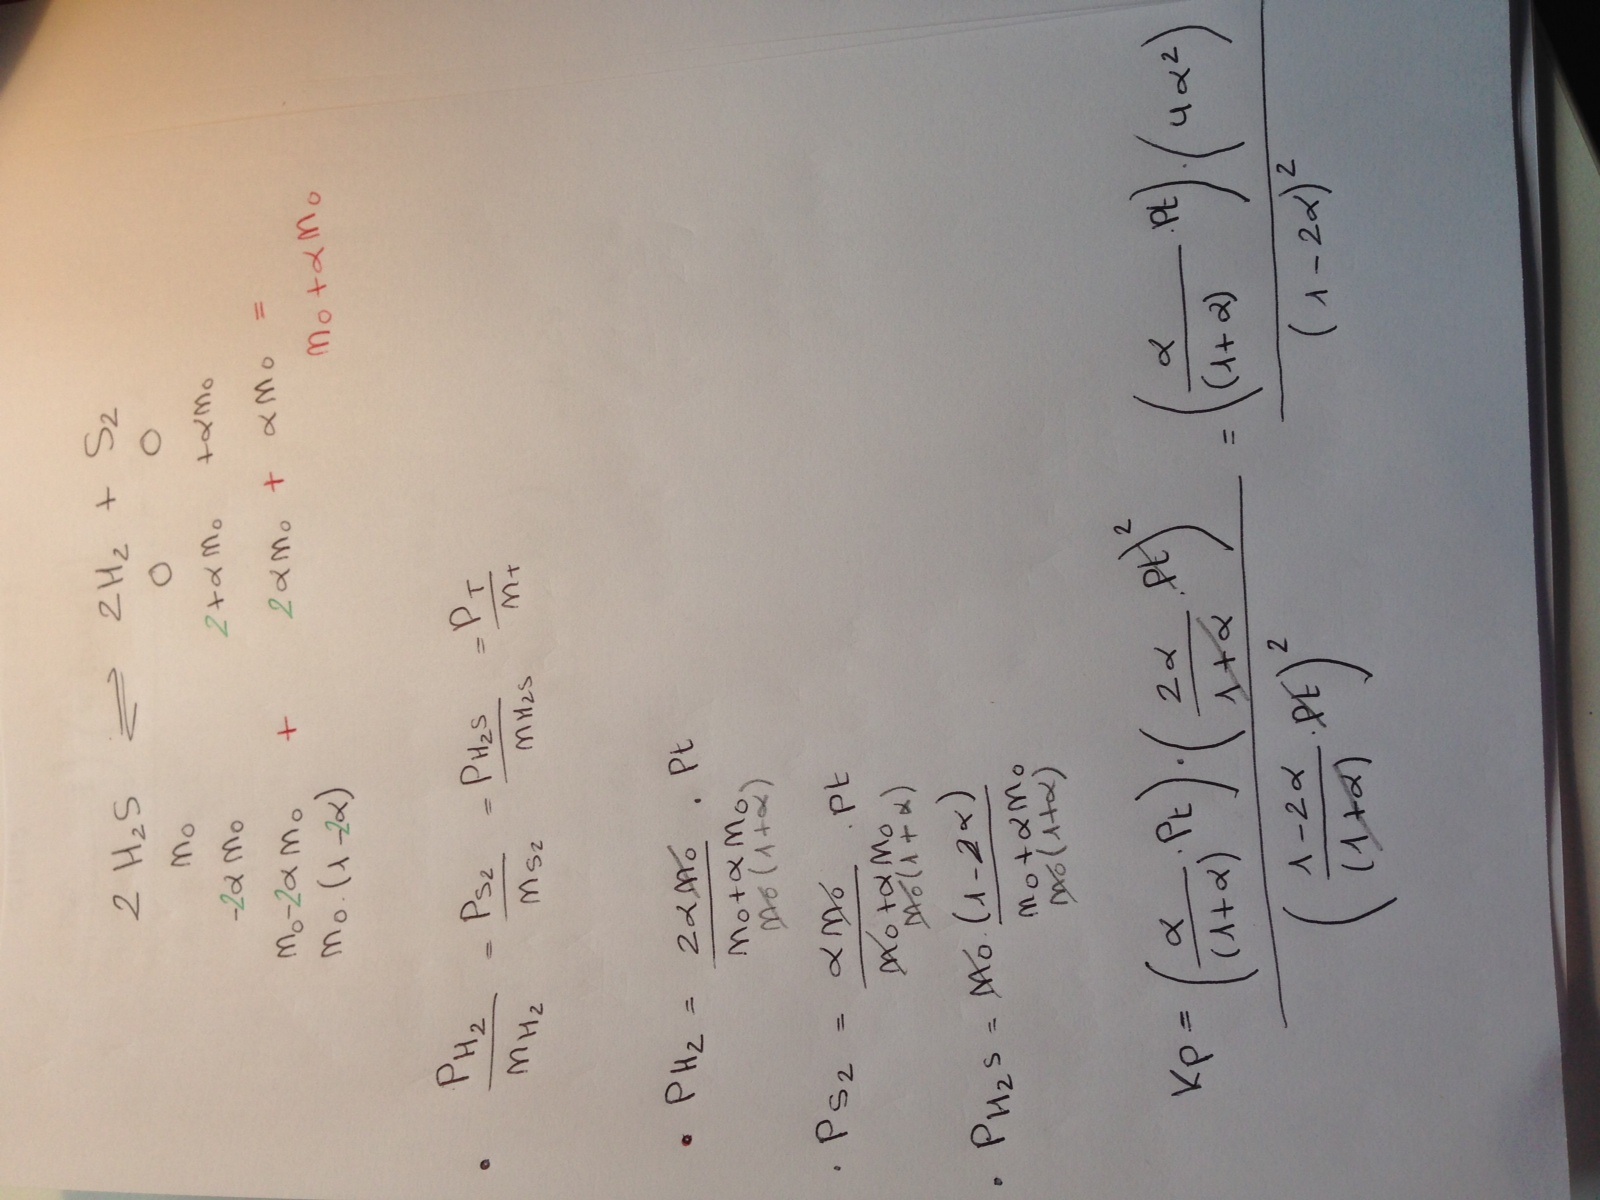 2 H₂S ⇌ 2H₂ + S₂
m₀ 0 0
-2αm₀ 2+αm₀ +αm₀
m₀-2αm₀ + 2αm₀ + αm₀ =
m₀.(1-2α) m₀+αm₀
• PH₂/mH₂ = PS₂/mS₂ = PH₂S/mH₂S = PT/mT
• PH₂ = 2αm₀/m₀+αm₀ . Pt
m₀(1+α)
. PS₂ = αm₀/m₀+αm₀ . Pt
m₀(1+α)
. PH₂S = m₀.(1-2α)/m₀+αm₀
m₀(1+α)
KP = (α/(1+α) .Pt).(2α/1+α .Pt)²/(1-2α/(1+α) .Pt)² = (α/(1+α) .Pt).(4α²)/(1-2α)²